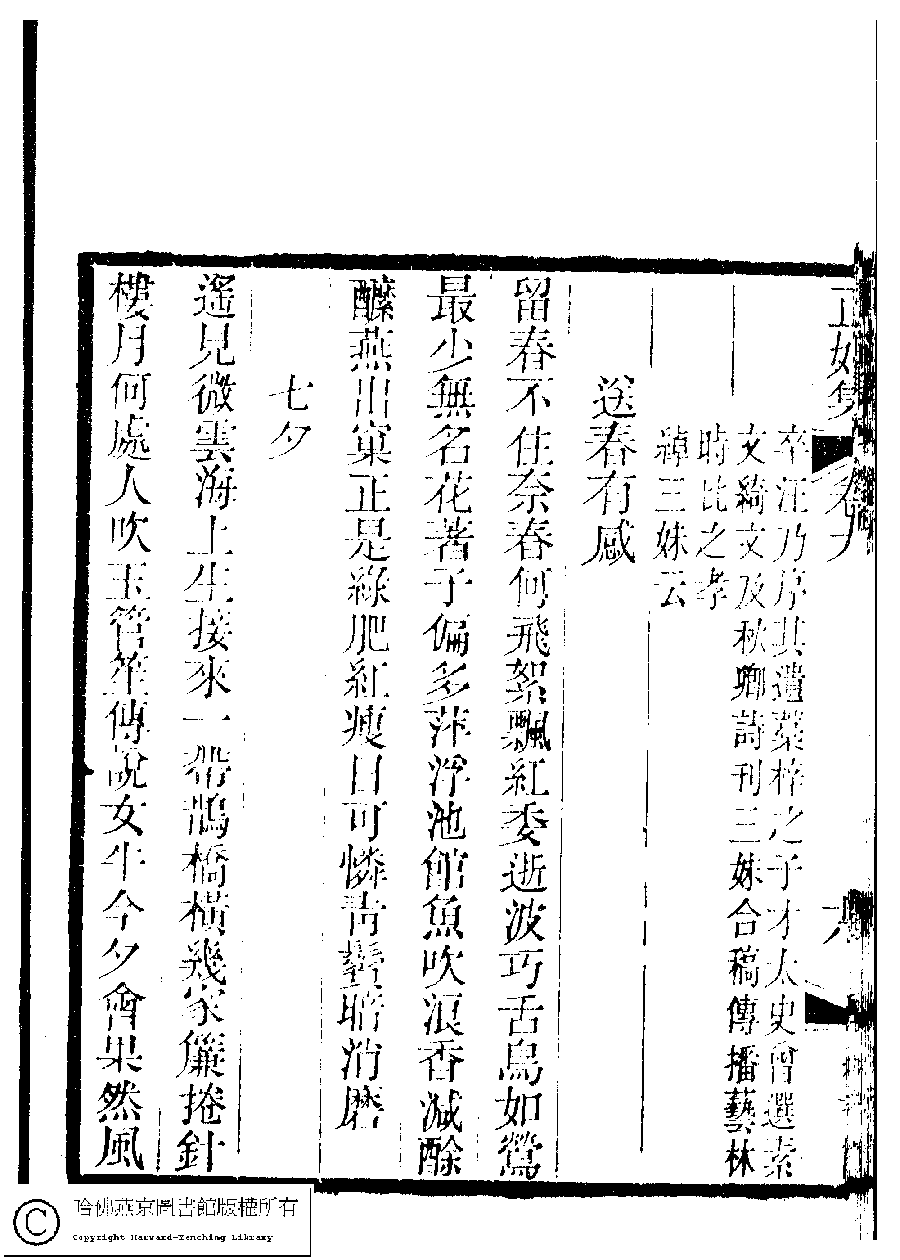 正始集 卷九 六
卒汪乃序其遺菜梓之子才太史曾選素
文綺文及秋卿詩刊三妹合稿傳播藝林
時比之孝
綽三妹云
送春有感
留春不住奈春何飛絮飄紅委逝波巧舌鳥如鶯
最少無名花著子偏多萍浮池館魚吹浪香減酴
醾燕出窠正是綠肥紅瘦日可憐青鬢暗消磨
七夕
遙見微雲海上生接來一帶鵲橋橫幾家簾捲針
樓月何處人吹玉管笙傳說女牛今夕會果然風
哈佛燕京圖書館版權所有
Copyright Harvard-Yenching Library